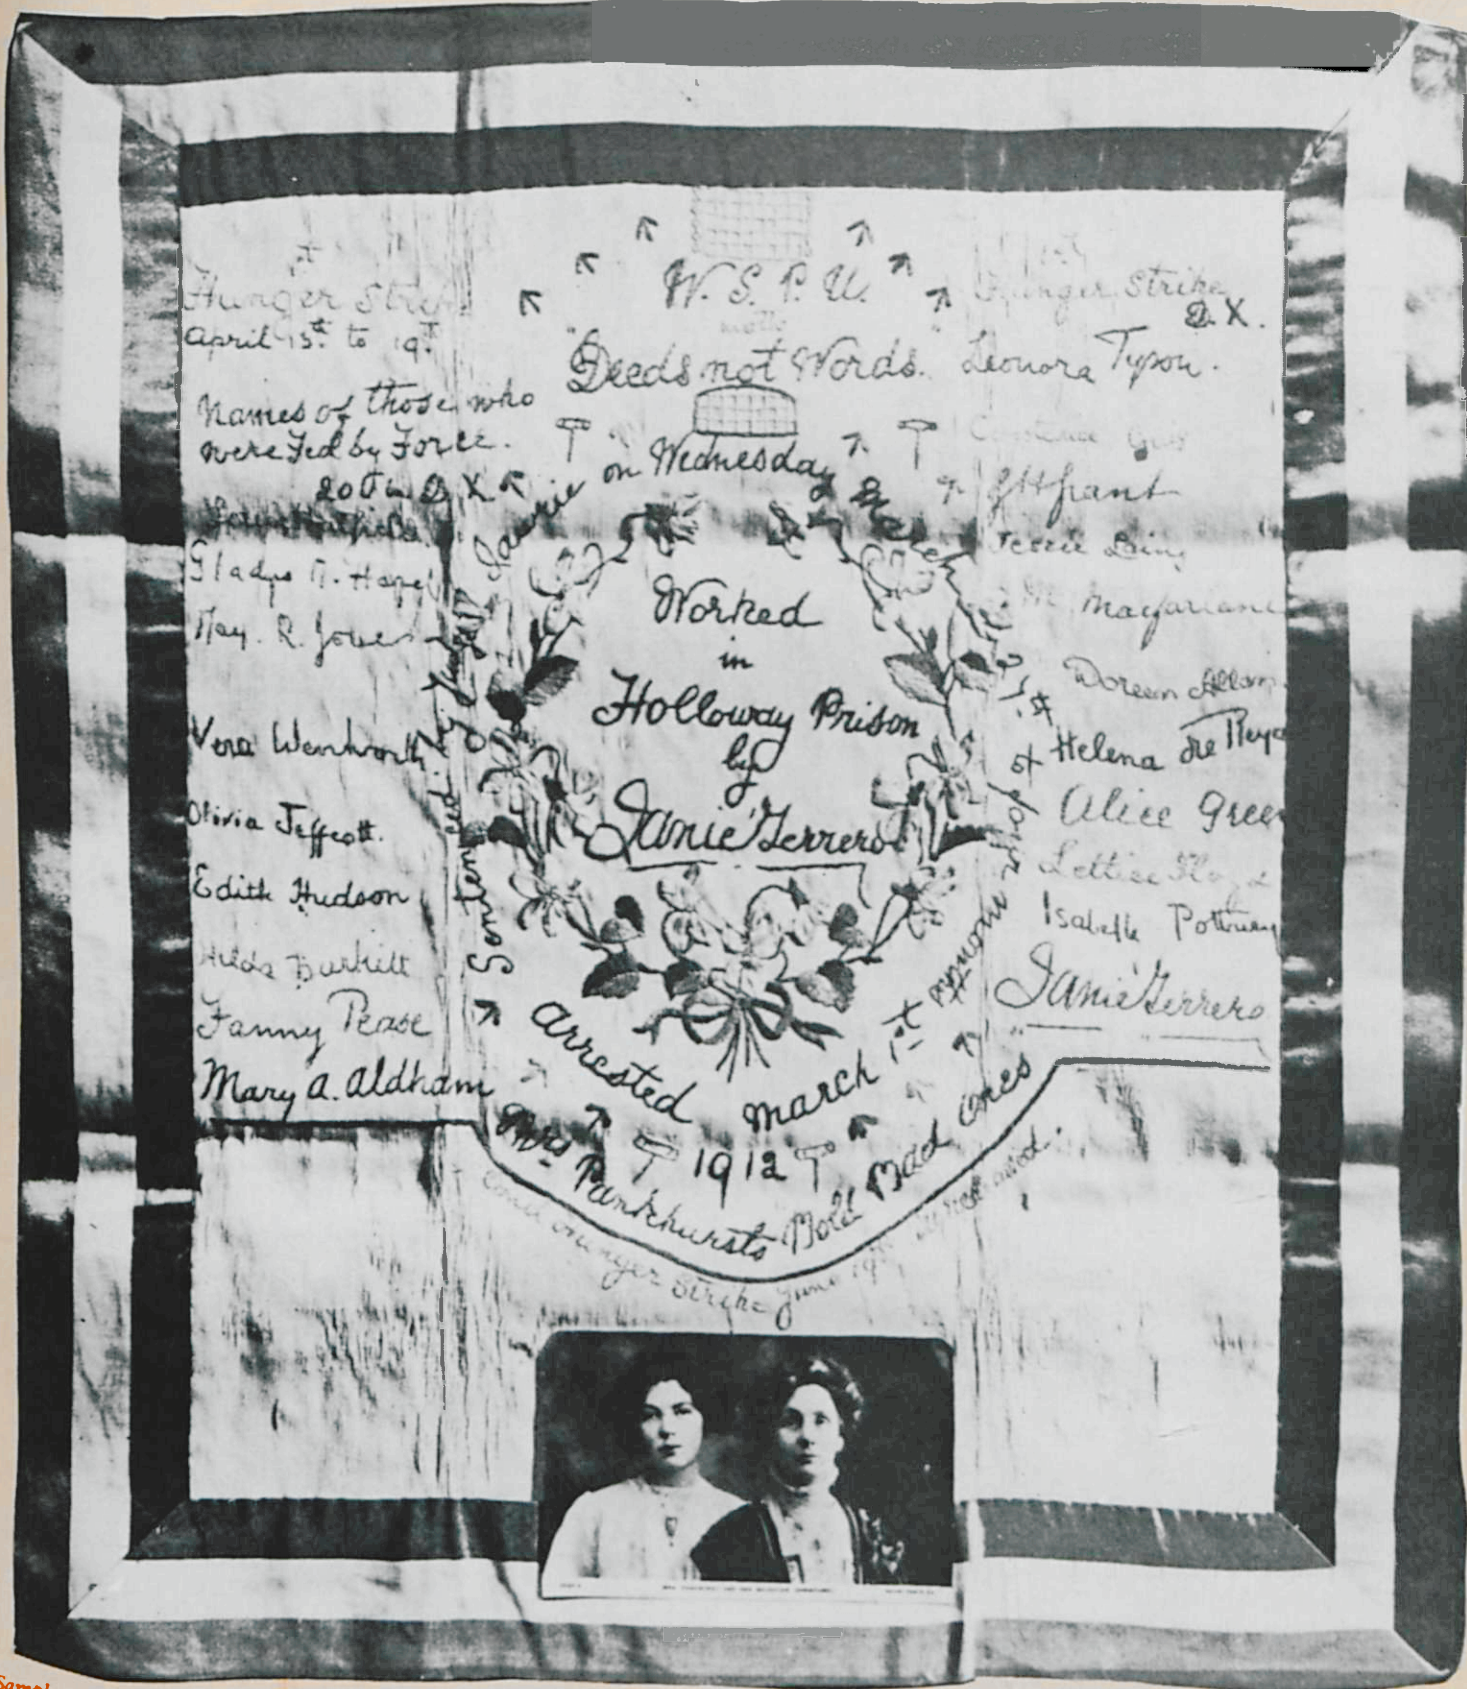 1st
Hunger Strike
April 13th to 19th
Names of those who
were Fed by Force.
Gladys
May. R. Jones
Vera Wentworth
Olivia Jeffcott.
Edith Hudson
Hilda Burkitt
Fanny Pease
Mary A. Aldham
W. S. P. U.
motto
"Deeds not Words."
Sentenced by Judge Lawrie on Wednesday March
of four months
Worked
in
Holloway Prison
by
Janie Terrero
Arrested March 1st
1912
Mrs Pankhursts Bold Bad Ones"
Hunger Strike June 19th
1st
Hunger Strike
Leonora Tyson.
G H Grant
Jessie Laing
M. Macfarlane
Doreen Allen
Helena de
Alice Green
Lettice Floyd
Isabella Potbury
Janie Terrero